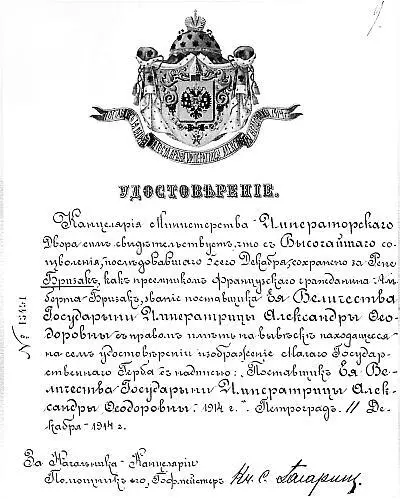 УДОСТОВѢРЕНІЕ.
Канцелярія Министерства Императорскаго
Двора симъ свидѣтельствуетъ, что съ Высочайшаго со-
изволенія, послѣдовавшаго 7сего Декабря, сохранено за Рене
Бризакъ, какъ преемникомъ Французскаго гражданина Аль-
берта Бризакъ, званіе поставщика Ея Величества
Государыни Императрицы Александры Ѳео-
доровны съ правомъ имѣть на вывѣскѣ находящееся
на семъ удостовѣреніи изображеніе Малаго Государ-
ственнаго Герба съ надписью: „Поставщикъ Ея Ве-
личества Государыни Императрицы Алек-
сандры Ѳеодоровны 1914 г." Петроградъ. 11 Де-
кабря 1914 г.
№ 13451
За Начальника Канцеляріи
Помощникъ его, Гофмейстеръ Кн. С. Гагаринъ